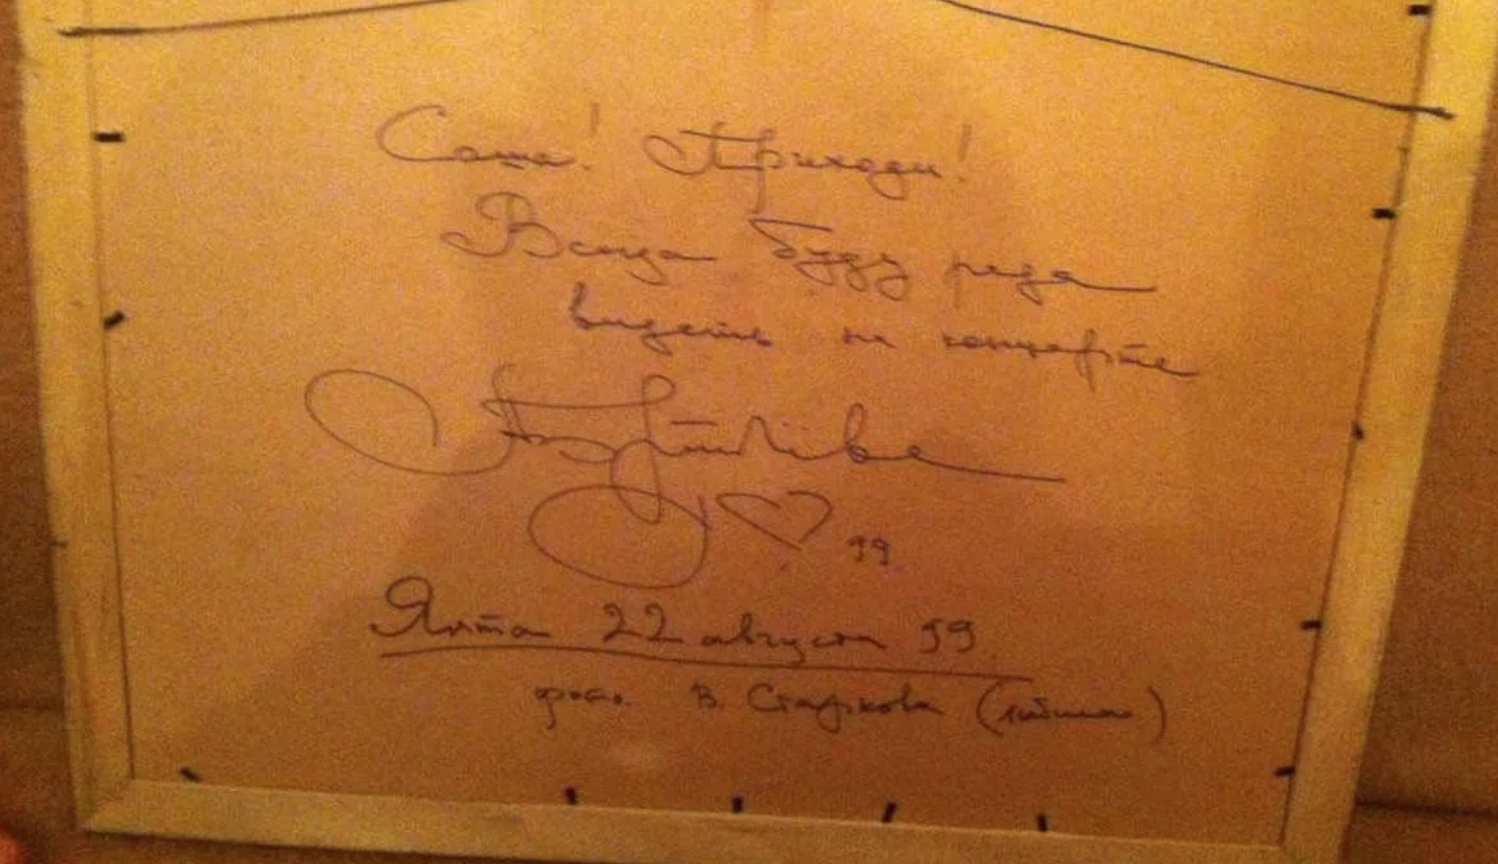 Саша! Приходи!
Всегда буду рада
видеть на концерте
99
Ялта 22 августа 99
фото. В. Старкова (Ялта)